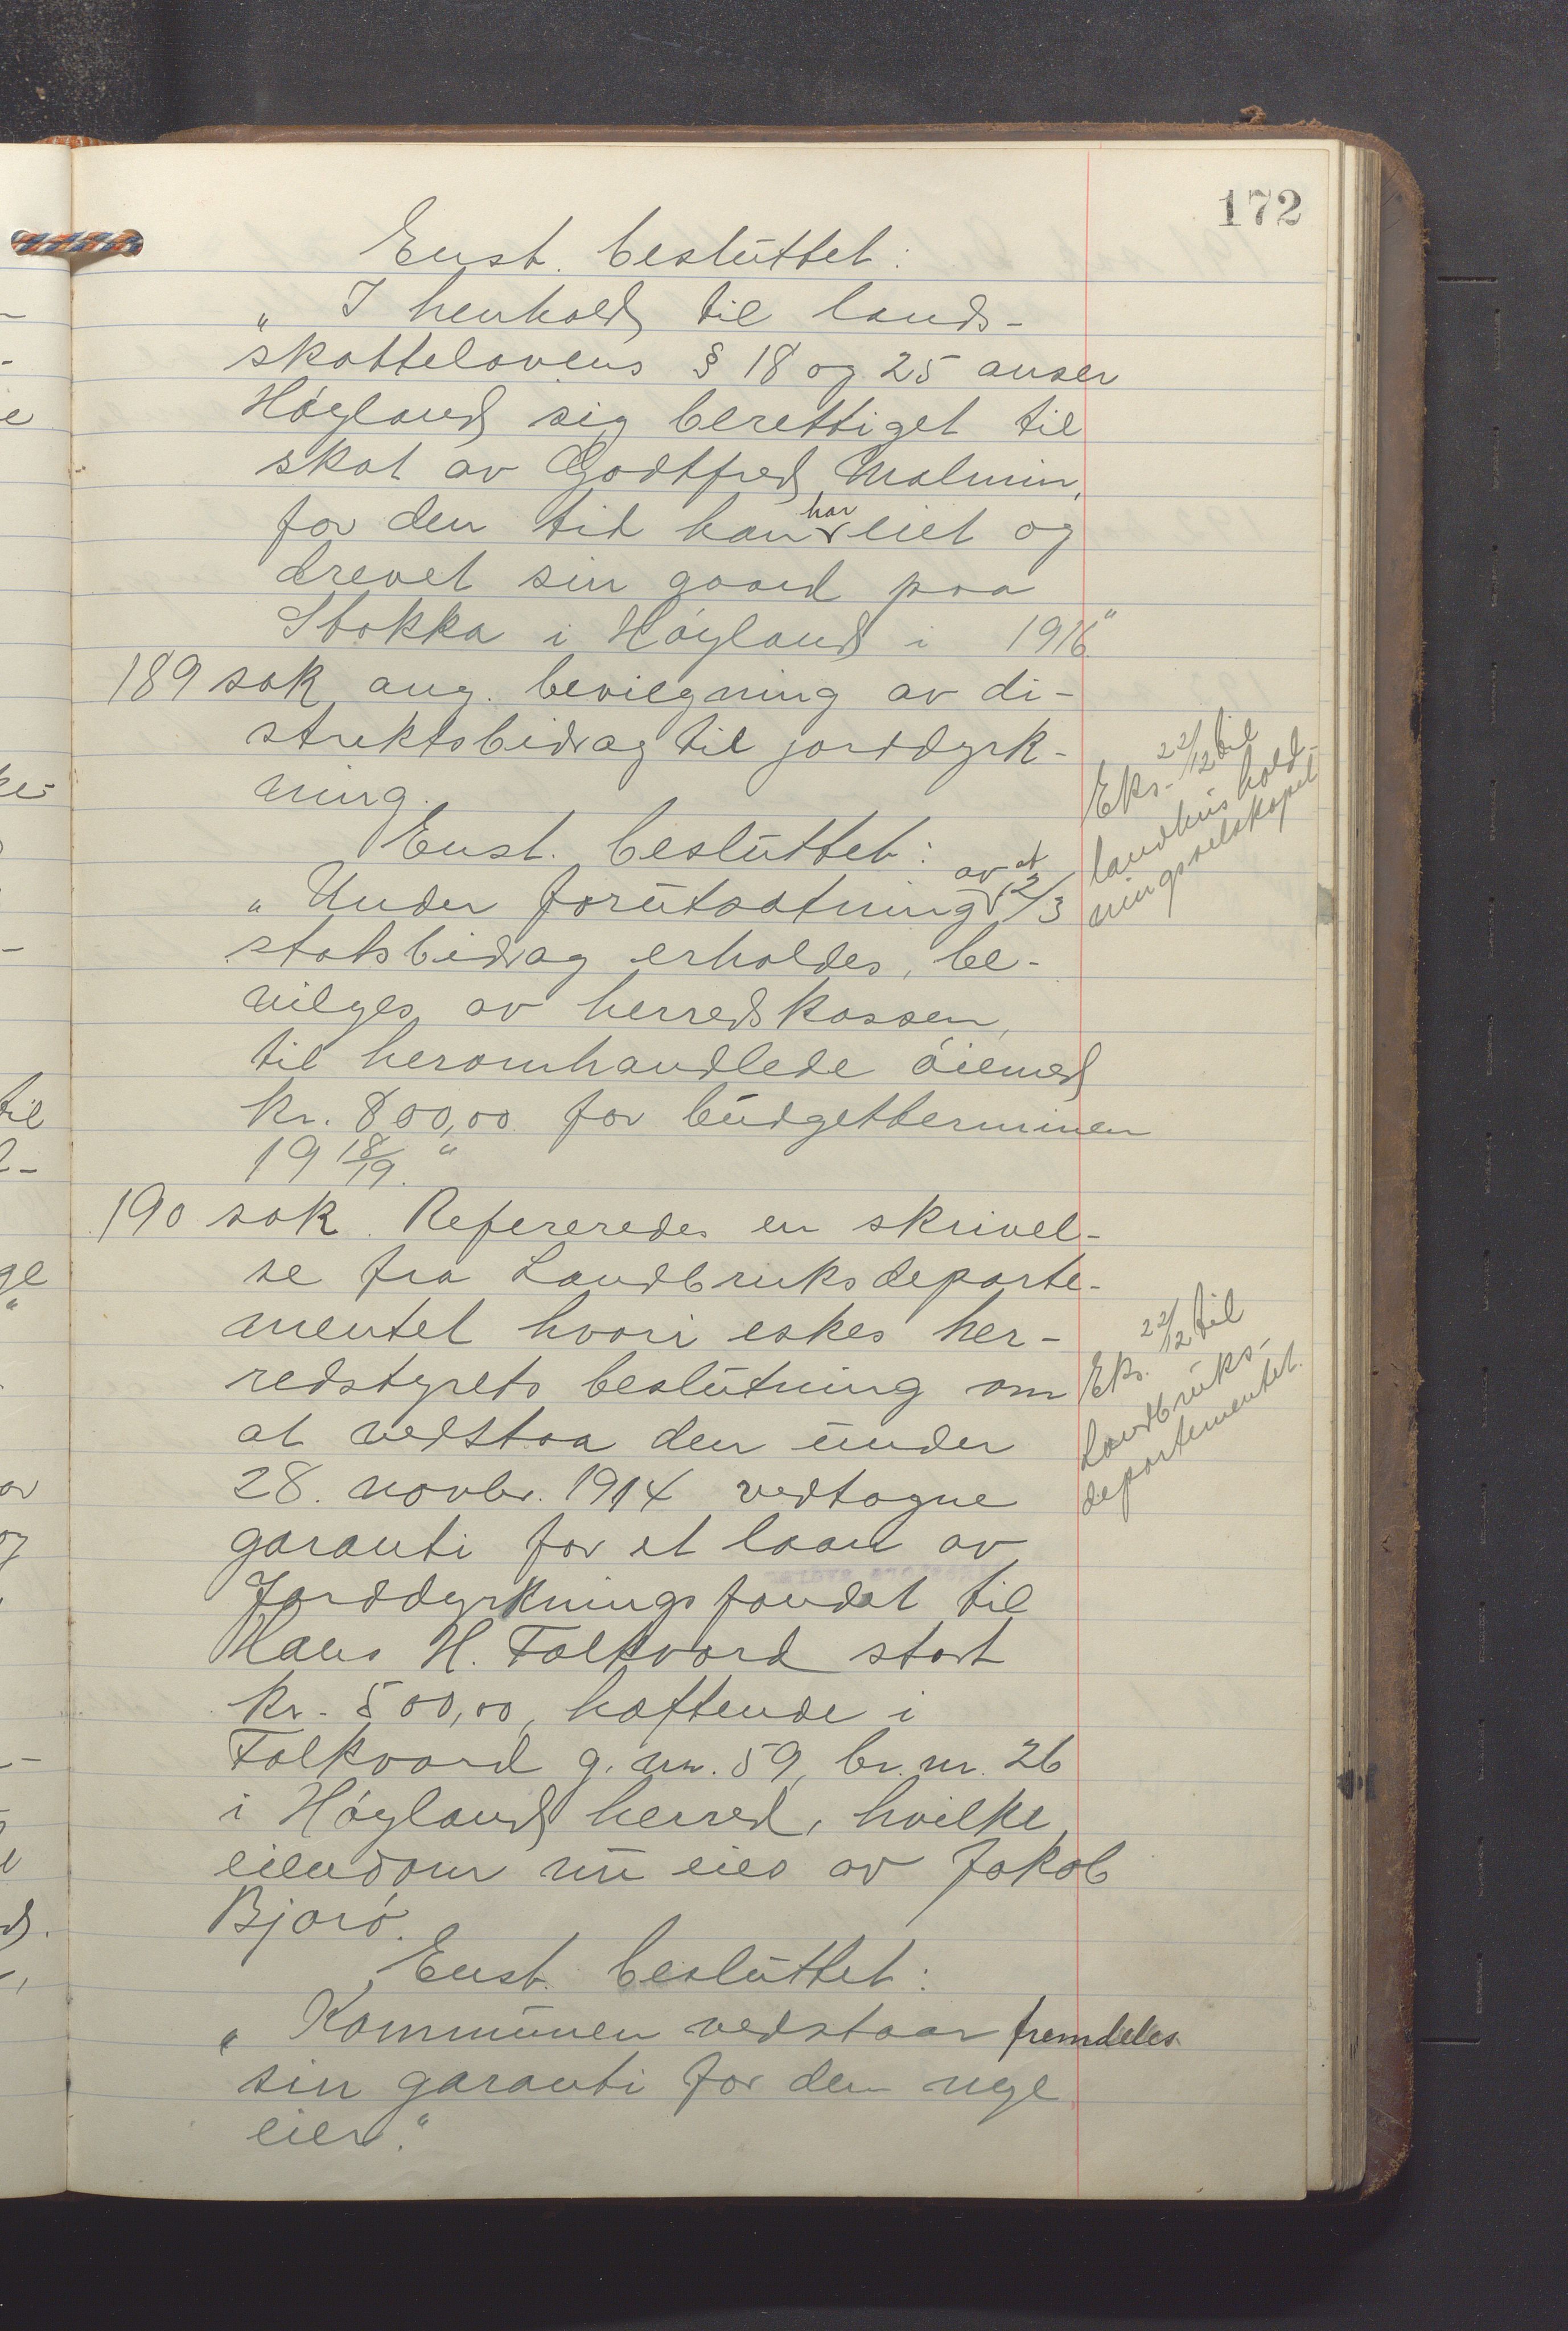 172
Enst. besluttet:
„ I henhold til lands-
skattelovens § 18 og 25 anser
Høyland sig berettiget til
skat av Godtfred Malmin,
for den tid han har eiet og
drevet sin gaard paa
Stokka i Høyland i 1916"
189 sak ang. bevilgning av di-
striktsbidrag til jorddyrk-
ning.
Eks. 22/12 til
landhushold-
ningsselskapet
Enst. besluttet:
„ Under forutsætning av at 2/3
statsbidrag erholdes, be-
vilges av herredskassen,
til heromhandlede øiemed
kr. 800,00 for budgetterminen
19 18/19."
190 sak. Refereredes en skrivel-
se fra Landbruksdeparte-
mentet hvori eskes her-
redstyrets beslutning om
at vedstaa den under
28. novbr. 1914 vedtagne
garanti for et laan av
Jorddyrkningsfondet til
Hans H. Folkvord stort
kr. 500,00, heftende i
Folkvord g. nr. 59, br. nr. 26
i Høyland herred, hvilke
eiendom nu eies av Jakob
Bjorø.
Eks. 22/12 til
Landbruks-
departementet.
Enst. besluttet:
„ Kommunen vedstaar fremdeles
sin garanti for den nye
eier."